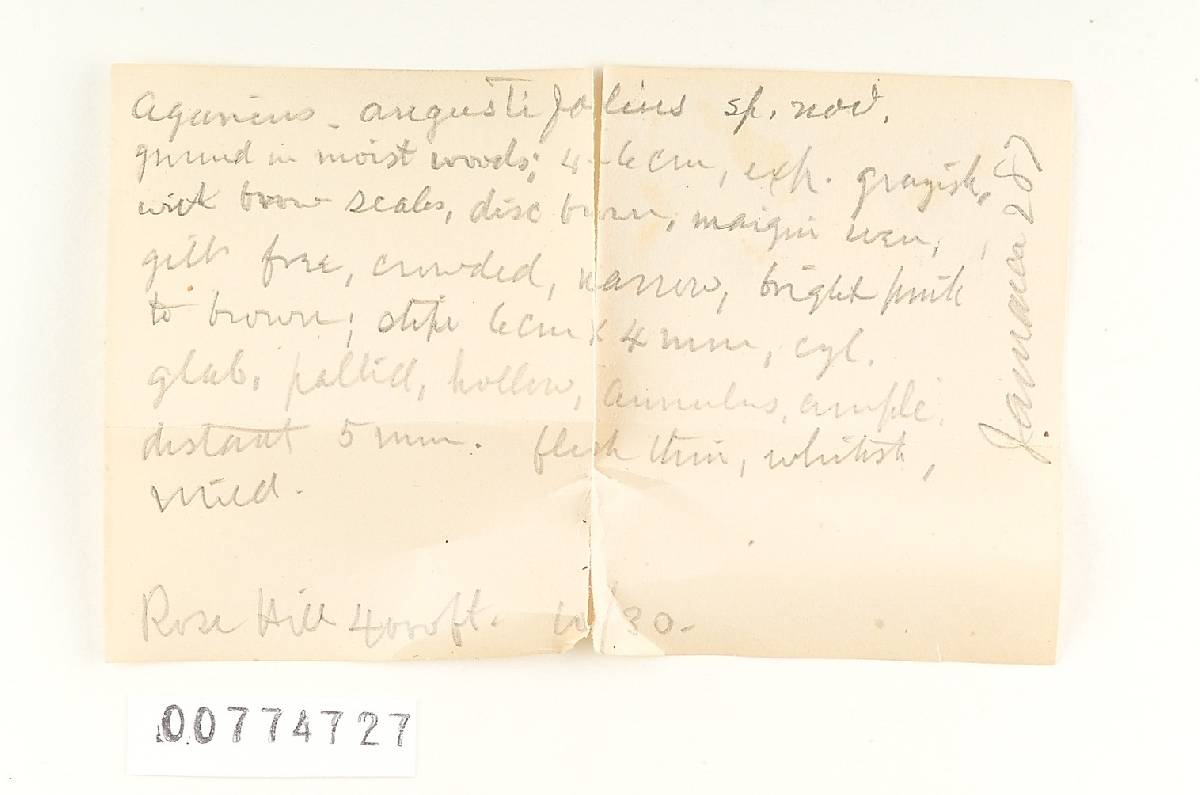 Agaricus angustifolius sp. nov.
ground in moist woods; 4-6 cm, exp. grayish,
with brown scales, disc brown, margin even,
gills free, crowded, narrow, bright pink
to brown; stipe 6 cm x 4 mm, cyl.
glab. pallid, hollow, annulus, ample,
distant 5 mm. flesh thin, whitish,
mild.
Rose Hill 4000 ft. 10/30-
Jamaica
00774727